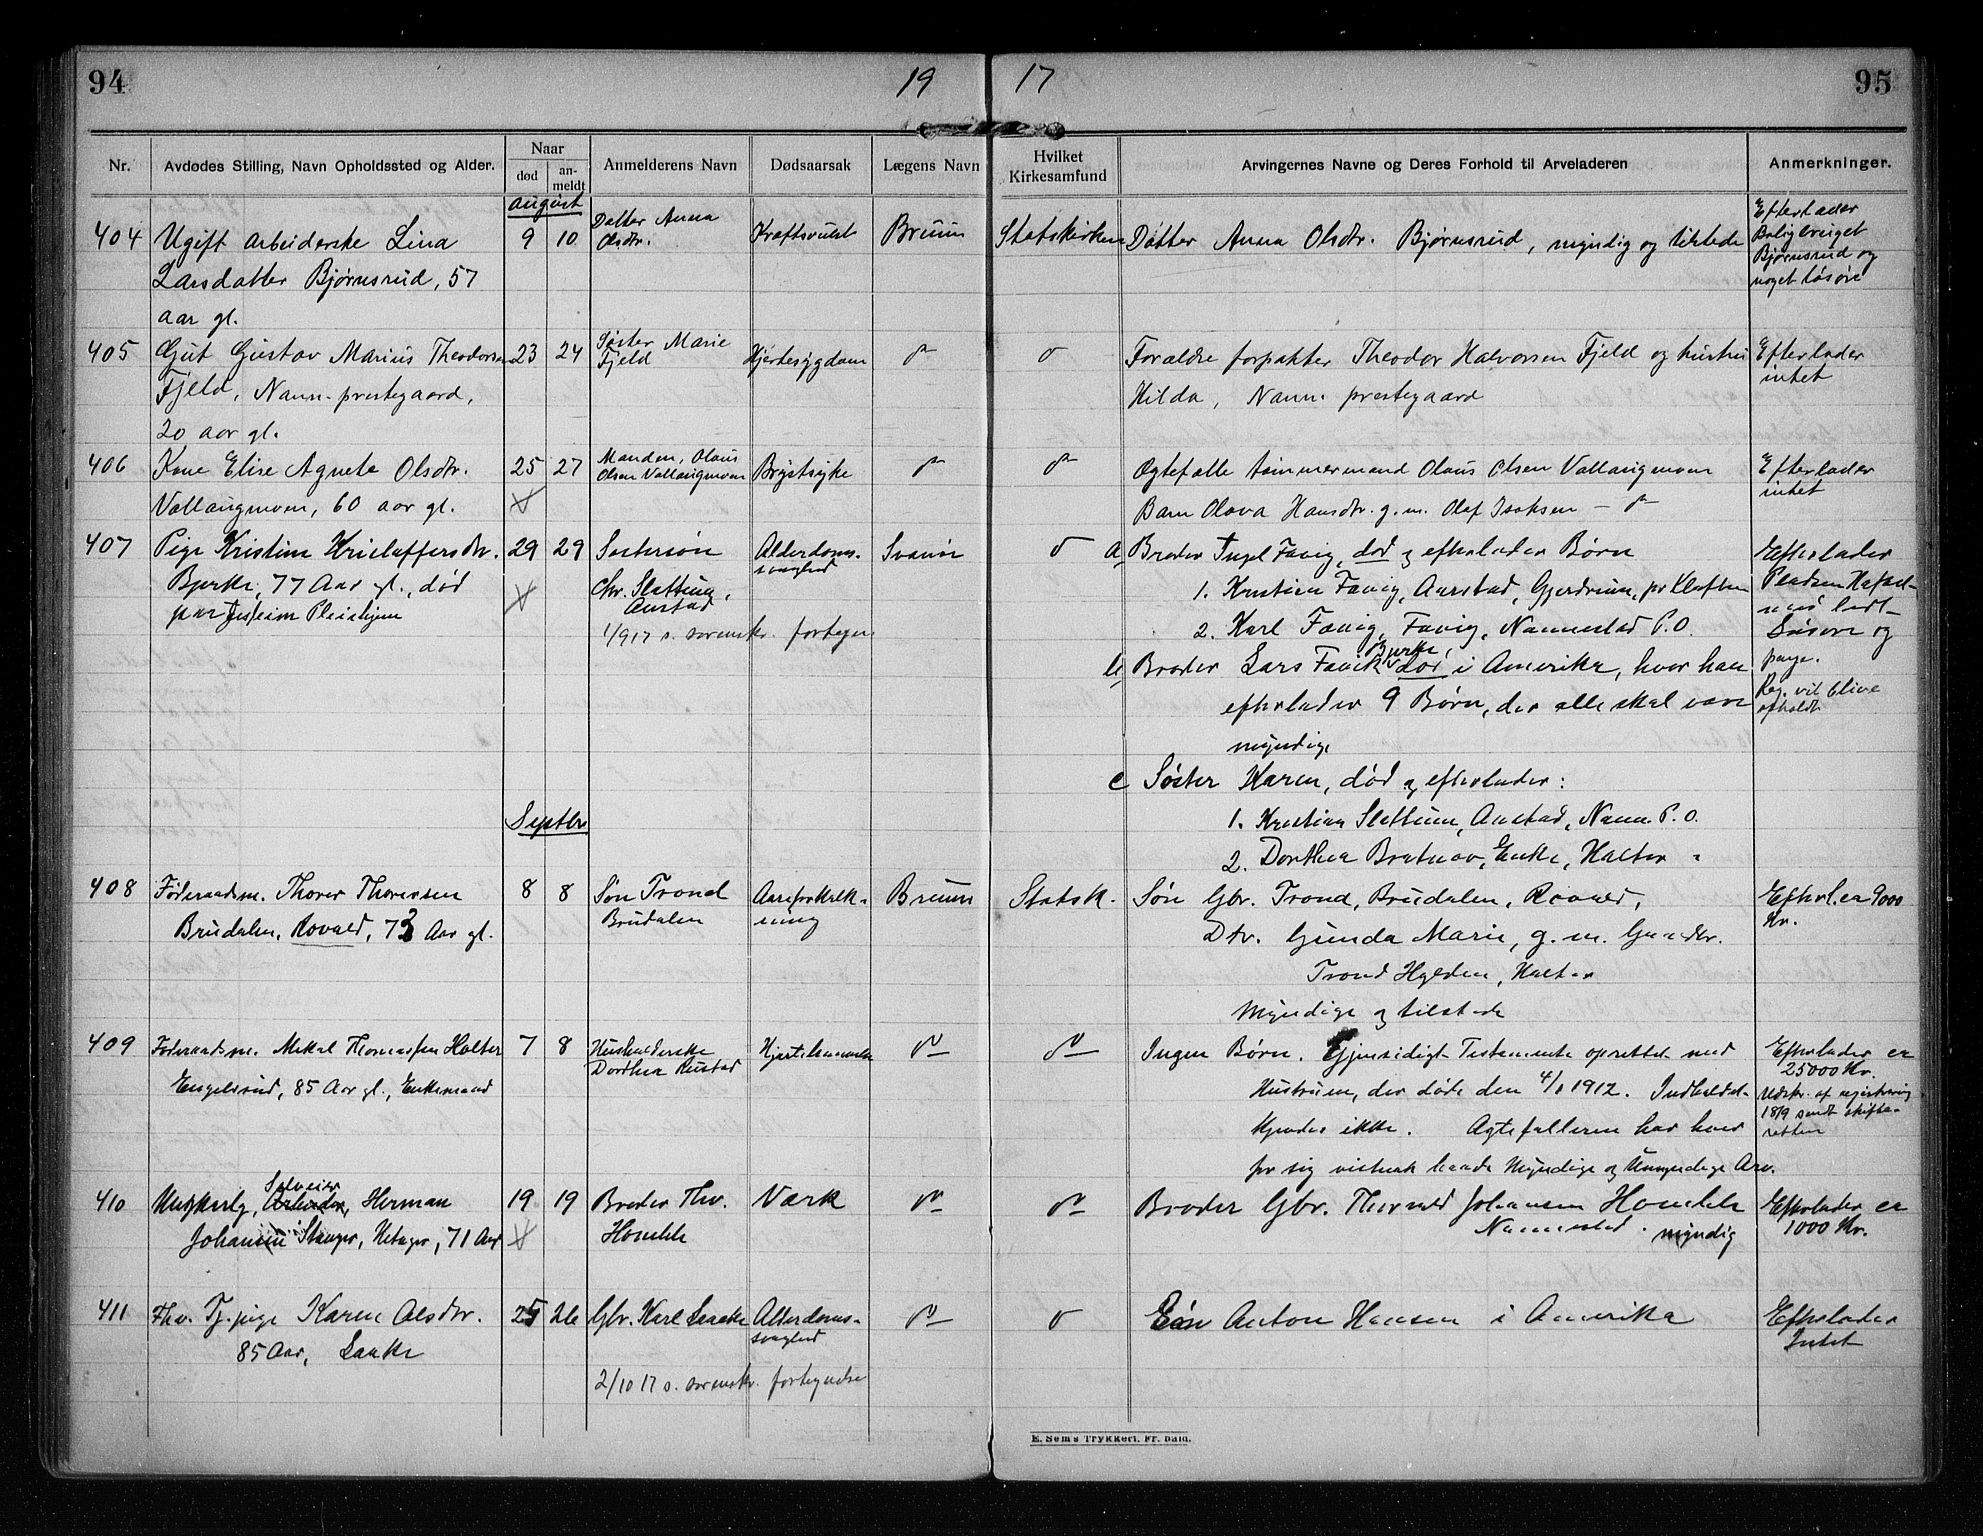 94
19
17
95
Nr.
Avdødes Stilling, Navn Opholdssted og Alder.
Naar
død
an-
meldt
Anmelderens Navn
Dødsaarsak
Lægens Navn
Hvilket
Kirkesamfund
Arvingernes Navne og Deres Forhold til Arveladeren
Anmerkninger.
August
404
Ugift arbeiderske Lina
Larsdatter Bjørnsrud, 57
aar gl.
9
10
Datter Anna
Olsdtr.
Kræftsvulst
Bruun
Statskirken
Datter Anna Olsdtr. Bjørnsrud, myndig og tilstede
Efterlader
Boligbruget
Bjørnsrud og
noget løsøre
405
Gut Gustav Marius Theodorsen
Fjeld, Nann. prestegaard,
20 aar gl.
23
24
Søster Marie
Fjeld
Hjertesygdom
Forældre forpakter Theodor Halvorsen Fjeld og hustru
Hilda, Nann. prestegaard
Efterlader
intet
406
Kone Elise Agnete Olsdtr.
Vallaugmoen, 60 aar gl.
25
27
Manden, Olaus
Olsen Vallaugmoen
Brystsyke
Egtefælle tømmermand Olaus Olsen Vallaugmoen
Barn Olava Hansdtr. g.m. Olaf Isaksen
Efterlader
intet
407
Pige Kristine Kristoffersdtr.
Bjerke, 77 Aar gl., død
paa Jesseim Pleiehjem
29
29
Søstersøn
Chr. Slattum,
Anstad
1/9 17 s. sorenskr. fortegn.
Alderdoms-
svaghed
Svanøe
a, Broder Ingel Favig, død og efterlader Børn
1. Kristian Favig, Aarstad, Gjerdrum, pr Kløften
2. Karl Favig, Favig, Nannestad P.O.
b, Broder Lars Favik Bjerke, død i Amerika, hvor han
efterlader 9 Børn, der alle skal være
myndige
c Søster Karen, død og efterlader:
1. Kristian Slattum, Anstad, Nann. P.O.
2. Dorthea Bratnov, Enke, Holter "
Efterlader
Pladsen
lidt
Løsøre og
penge.
Reg. vil blive
afholdt
Septbr
408
Føderaadsm. Thorer Thorersen
Brudalen, Rovald, 73 Aar gl.
8
8
Søn Trond
Brudalen
Aareforkalk-
ning
Bruun
Statsk.
Søn Gbr. Trond, Brudalen, Rovald,
Dtr. Gunda Marie, g.m. Gaardbr.
Trond Hylden, Holter
Myndige og tilstede
Efterl. ca 9000
Kr.
409
Føderaadsm. Mikal Thomassen Holter
Engelsrud, 85 Aar gl., Enkemand
7
8
Husholderske
Dorthea Rustad
Hjertelammelse
Ingen Børn. Gjensidigt Testamente oprettet med
Hustruen, der døde den 4/1 1912. Indholdet
kjendes ikke. Ægtefællerne har hver
for sig vistnok baade Myndige og Umyndige Arv.
Efterlader ca
25000 Kr.
Udskr. af registrering
18/9 sendt skifte-
retten
410
Ungkarl, Arbeider, Herman
Johansen Stanger, 71 Aar
19
19
Broder Thv.
Homble
Værk
Broder Gbr. Thorvald Johansen Homble
Nannestad. myndig
Efterlader ca
1000 Kr.
411
Fhv. Tj.pige Karen Olsdtr.
85 Aar, Laake
25
26
Gbr. Karl Laake
2/10 17 s. sorenskr. fortegnelse
Alderdoms-
svaghed
Søn Anton Hansen i Amerika
Efterlader
Intet
E. Sem's Trykkeri, Fr. hald.